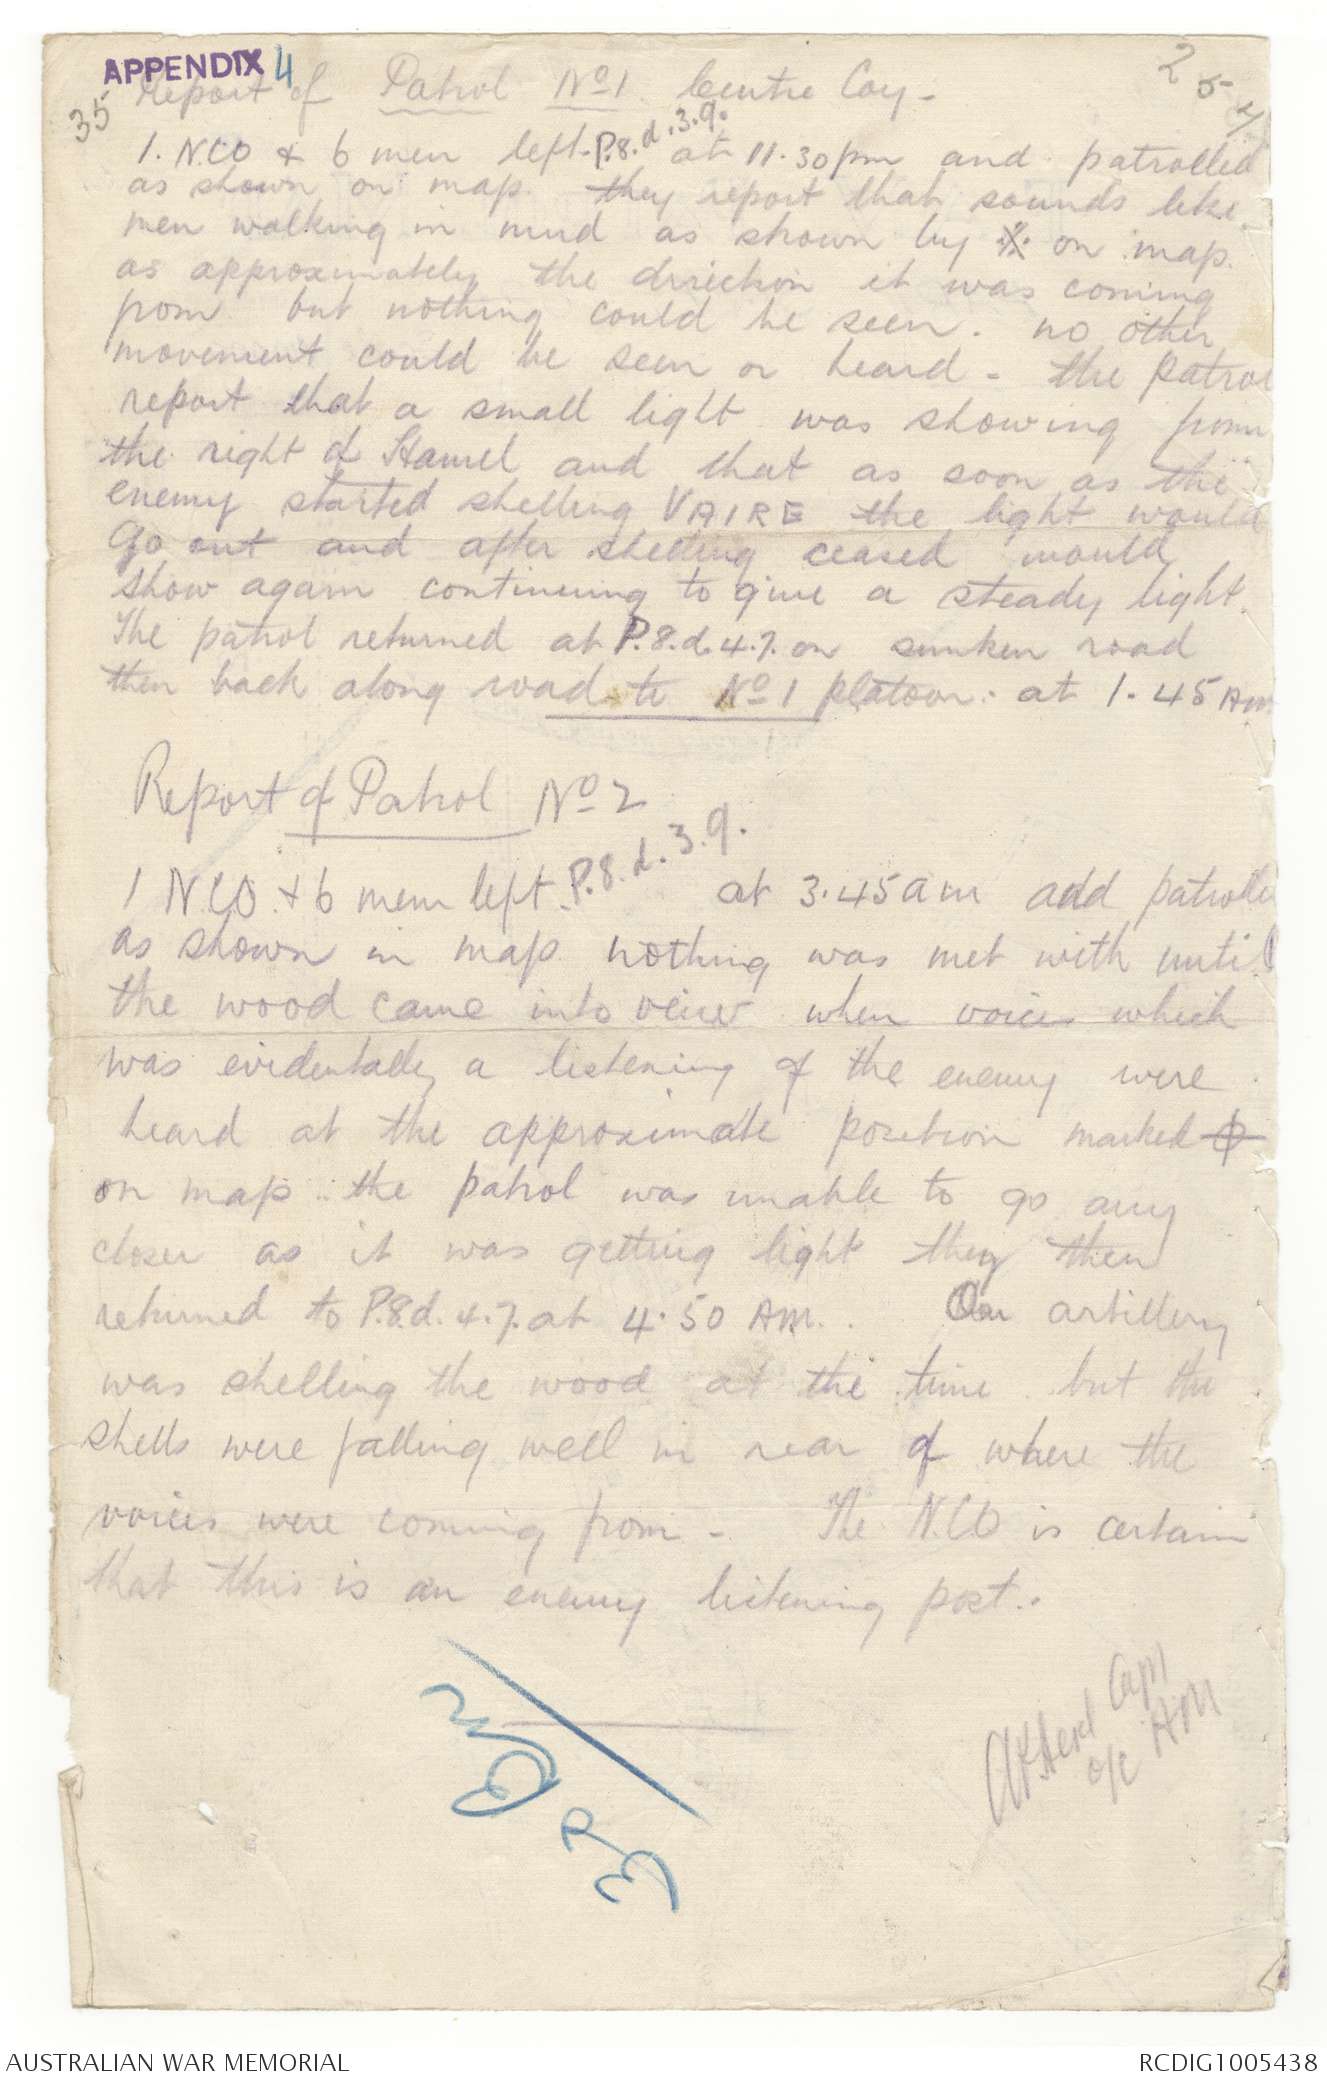 APPENDIX 4
35
Report of Patrol No 1 Centre Coy -
1. NCO & 6 men left P.8.d.3.9. at 11.30pm and patrolled
as shown on map. they report that sounds like
men walking in mud as shown by on map.
as approximately the direction it was coming
from but nothing could be seen. no other
movement could be seen or heard - the patrol
report that a small light was showing from
the right of Hamel and that as soon as the
enemy started shelling VAIRE the light would
go out and after shelling ceased would
show again continuing to give a steady light.
The patrol returned at P.8.d.4.7. on sunken road
then back along road to No 1 platoon. at 1.45 AM
Report of Patrol No 2
1 NCO. & 6 men left P.8.d.3.9. at 3.45am add patrolled
as shown in map nothing was met with until
the wood came into veiw when voices which
was evidentally a listening of the enemy were
heard at the approximate position marked
on map. the patrol was unable to go any
closer as it was getting light they then
returned to P.8.d.4.7. at 4.50 AM. Our artillery
was shelling the wood at the time but the
shells were falling well in rear of where the
voices were coming from - The NCO is certain
that this is an enemy listening post.
AUSTRALIAN WAR MEMORIAL
RCDIG1005438